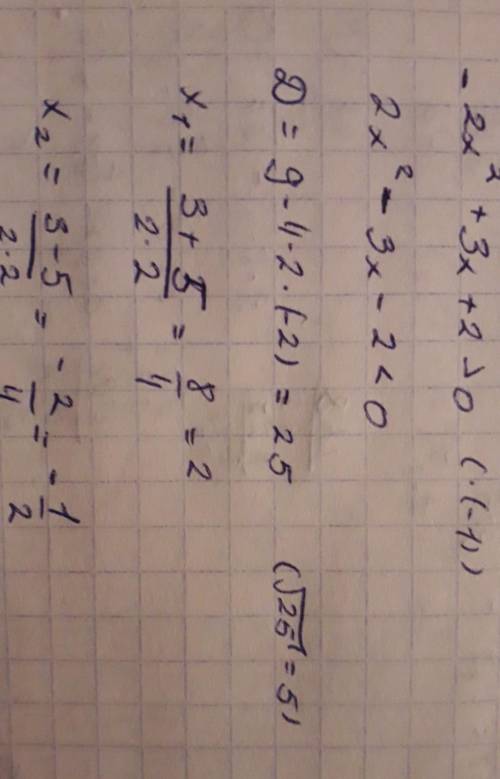 - 2x² + 3x + 2 > 0 (·(-1))
2x² - 3x - 2 < 0
D = 9 - 4·2·(-2) = 25 (√25 = 5)
x₁ = (3+5)/(2·2) = 8/4 = 2
x₂ = (3-5)/(2·2) = -2/4 = -1/2